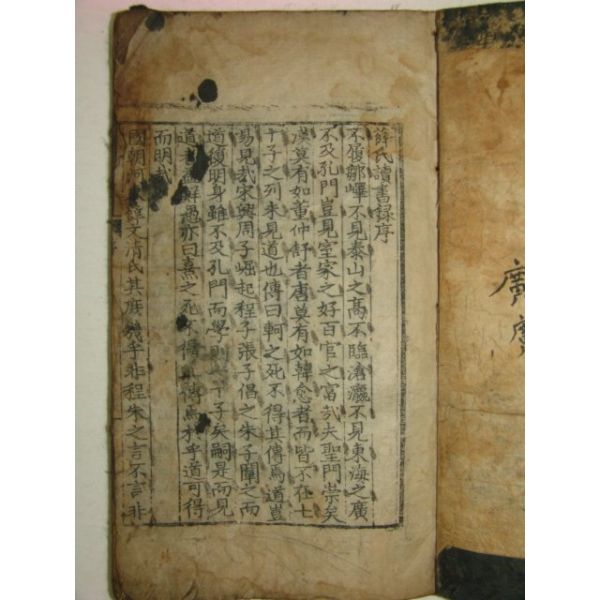 薛氏讀書録序
不履鄒嶧不見泰山之高不臨滄瀛不見東海之廣
不及孔門豈見室家之好百官之富㢤夫聖門崇矣
漢莫有如董仲舒者唐莫有如韓愈者而皆不在七
十子之列未見道也傳曰軻之死不得其傳焉道豈
易見哉宋興周子崛起程子張子倡之朱子闡之而
道復明身雖不及孔門而學則七十子矣嗣是而見
道者益鮮愚亦曰熹之死不得其傳焉於乎道可得
而明哉
國朝河東薛文清氏其庶幾乎非程朱之言不言非
廣